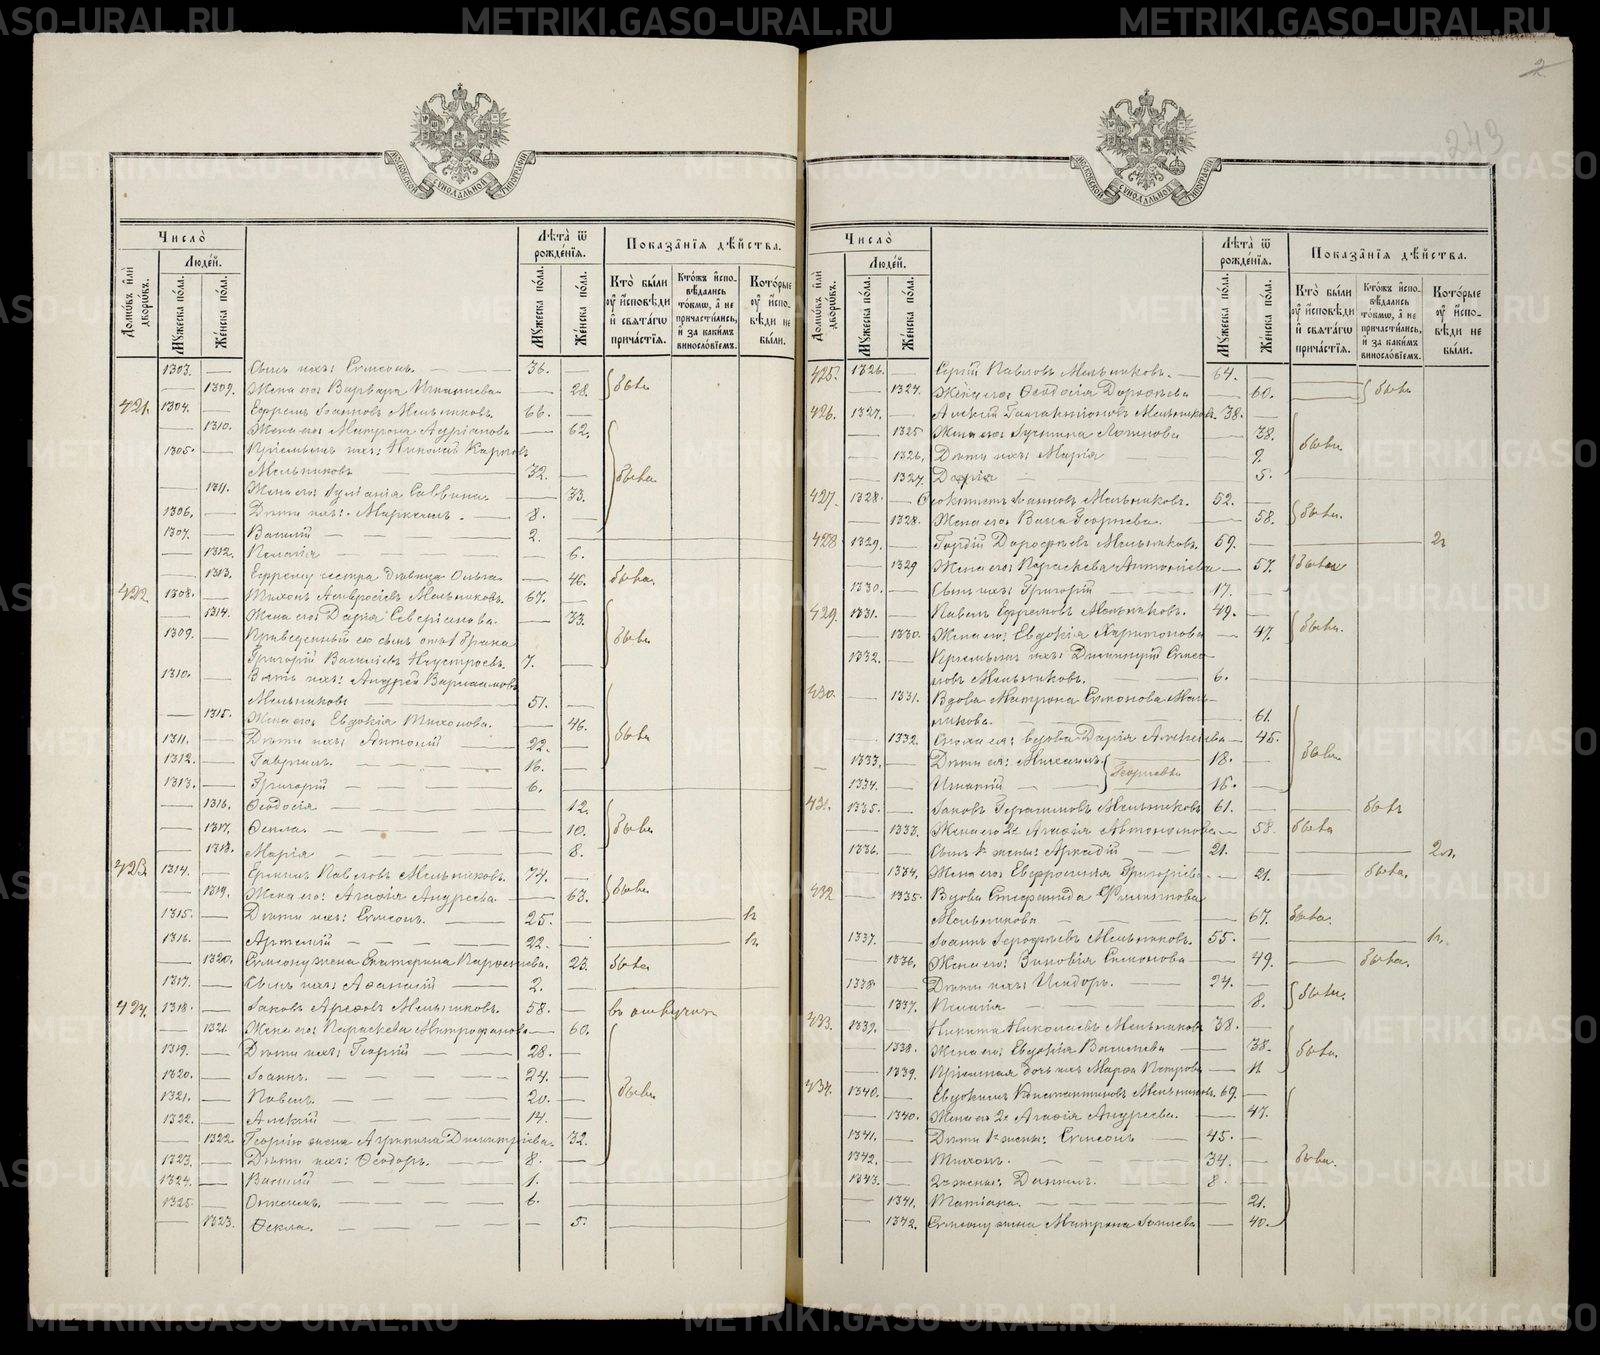 METRIKI.GASO-URAL.RU
МОСКОВСКОЙ СѴНОДАЛЬНОЙ ТИПОГРАФІИ
Число̀
Людей.
Домѡвъ и҆лѝ дворѡвъ.
Мꙋжеска пола.
Женска пола.
Лѣта̀ ѿ рождeнїѧ.
Мꙋжеска пола.
Женска пола.
Показанїѧ дѣйства.
Кто̀ были ᲂу҆ и҆сповѣди и҆ свѧтагѡ причастїѧ.
Ктожъ и҆сповѣдались токмѡ, а҆ не причастились, и҆ за какимъ винословїемъ.
Которые ᲂу҆ и҆сповѣди не были.
1303. — Сынъ ихъ: Симеонъ. — 36. —
— 1309. Жена его: Варвара Игнатиева — 28. быва
421. 1304. — Ефремъ Іоанновъ Мельниковъ. 66. —
— 1310. Жена его: Матрона Адріанова — 62.
1305. — Пріемышъ ихъ: Николай Карповъ
Мельниковъ — 32. — быва
— 1311. Жена его: Саввина — 33.
1306. — Дѣти ихъ: Маркеллъ. — 8. —
1307. — Василій — 2. —
— 1312. Пелагія — 6.
— 1313. Ефрему сестра дѣвица Ольга — 46. быва.
422. 1308. — Тихонъ Амвросіевъ Мельниковъ. 67. —
— 1314. Жена его: Дарія Северіанова. — 33.
1309. — Приведенный ею сынъ отъ 1 брака быва
Григорій Василіевъ 7. —
1310. — Зять ихъ: Андрей Варлаамовъ
Мельниковъ — 51. —
— 1315. Жена его: Евдокія Тихонова. — 46.
1311. — Дѣти ихъ: Антоній 22. — быва
1312. — Гавріилъ. — 16. —
1313. — Григорій — 6. —
— 1316. Ѳеодосія — 12.
— 1317. Ѳекла. — 10. быва
— 1318. Марія — 8.
423. 1314. — Павловъ Мельниковъ. 74. —
— 1319. Жена его: Агафія Андреева. — 63. быва
1315. — Дѣти ихъ: Симеонъ. — 25. —
1316. — Артемій — 22. —
— 1320. Симеону жена Екатерина 23. быва
1317. — Сынъ ихъ: Аѳанасій — 2. —
424. 1318. — Іаковъ Мельниковъ. 58. — въ отлучкѣ
— 1321. Жена его: Параскева Митрофанова — 60.
1319. — Дѣти ихъ: Георгій — 28. —
1320. — Іоаннъ. — 24. —
1321. — Павелъ — 20. — быва
1322. — Алексій — 14. —
— 1322. Георгію жена Агрипина Димитріева. 32.
1323. — Дѣти ихъ: Ѳеодоръ. — 8. —
1324. — Василій — 1. —
1325. — 6.
— 1323. Ѳекла. — 5.
2
243
МОСКОВСКОЙ СѴНОДАЛЬНОЙ ТИПОГРАФІИ
Число̀
Людей.
Домѡвъ и҆лѝ дворѡвъ.
Мꙋжеска пола.
Женска пола.
Лѣта̀ ѿ рождeнїѧ.
Мꙋжеска пола.
Женска пола.
Показанїѧ дѣйства.
Кто̀ были ᲂу҆ и҆сповѣди и҆ свѧтагѡ причастїѧ.
Ктожъ и҆сповѣдались токмѡ, а҆ не причастились, и҆ за какимъ винословїемъ.
Которые ᲂу҆ и҆сповѣди не были.
425. 1326. — Сергій Павловъ Мельниковъ. — 64. —
— 1324. Жена его: Ѳеодосія Дороѳеева — 60. быва
426. 1327. — Алексій Галактіоновъ Мельниковъ 38. —
— 1325 Жена его: Логинова — 38.
— 1326. Дѣти ихъ: Марія — 9. быва
— 1327. Дарія — 5.
427. 1328. — Ѳеоктистъ Іоанновъ Мельниковъ. 52. —
— 1328. Жена его: Васса Георгіева. — 58. быва.
428 1329. — Гордій Дороѳеевъ Мельниковъ. 59. —
— 1329 Жена его: Параскева Антоніева — 57. быва
1330. — Сынъ ихъ: Григорій — 17. —
429. 1331. — Павелъ Ефремовъ Мельниковъ. 49. —
— 1330. Жена его: Евдокія Харитонова — 47. быва.
1332. — Пріемышъ ихъ: Димитрій Симео-
новъ Мельниковъ. — 6. —
430. — 1331. Вдова Матрона Симонова Мель-
никова. — 61.
— 1332. Сноха ея: вдова Дарія Алексѣева — 45.
1333. — Дѣти ея: Михаилъ Георгіевы 18. — быва
1334. — Игнатій — 16. —
431. 1335. — Іаковъ Герасимовъ Мельниковъ 61. — бытъ
— 1333. Жена его 2я Агафія Автономова — 58. быва
1336. — Сынъ 1й жены: Аркадій — 21. — 2л.
— 1334. Жена его: Евфросинія Григоріева — 21. быва.
432 — 1335. Вдова Стефанида Филиппова
Мельникова — 67. быва.
1337. — Іоаннъ Іероѳеевъ Мельниковъ. 55. —
— 1336. Жена его: Зиновія Симонова — 49. быва.
1338 — Дѣти ихъ: Исидоръ. — 24. —
— 1337. Пелагія — 8. быва.
433. 1339. — Никита Николаевъ Мельниковъ 38. —
— 1338. Жена его: Евдокія Василіева — 38. быва.
— 1339. Пріемная дочь ихъ Марѳа Петрова — 11
434. 1340. — Евдокимъ Константиновъ Мельниковъ. 69. —
— 1340. Жена его 2я Агафія Андреева. — 47.
1341. — Дѣти 1й жены: Симеонъ — 45. —
1342. — Тихонъ. — 34. — быва.
1343. — 2й жены: Даніилъ. — 8. —
— 1341. Татіана. — 21.
— 1342. Симеону жена Матрона — 40.